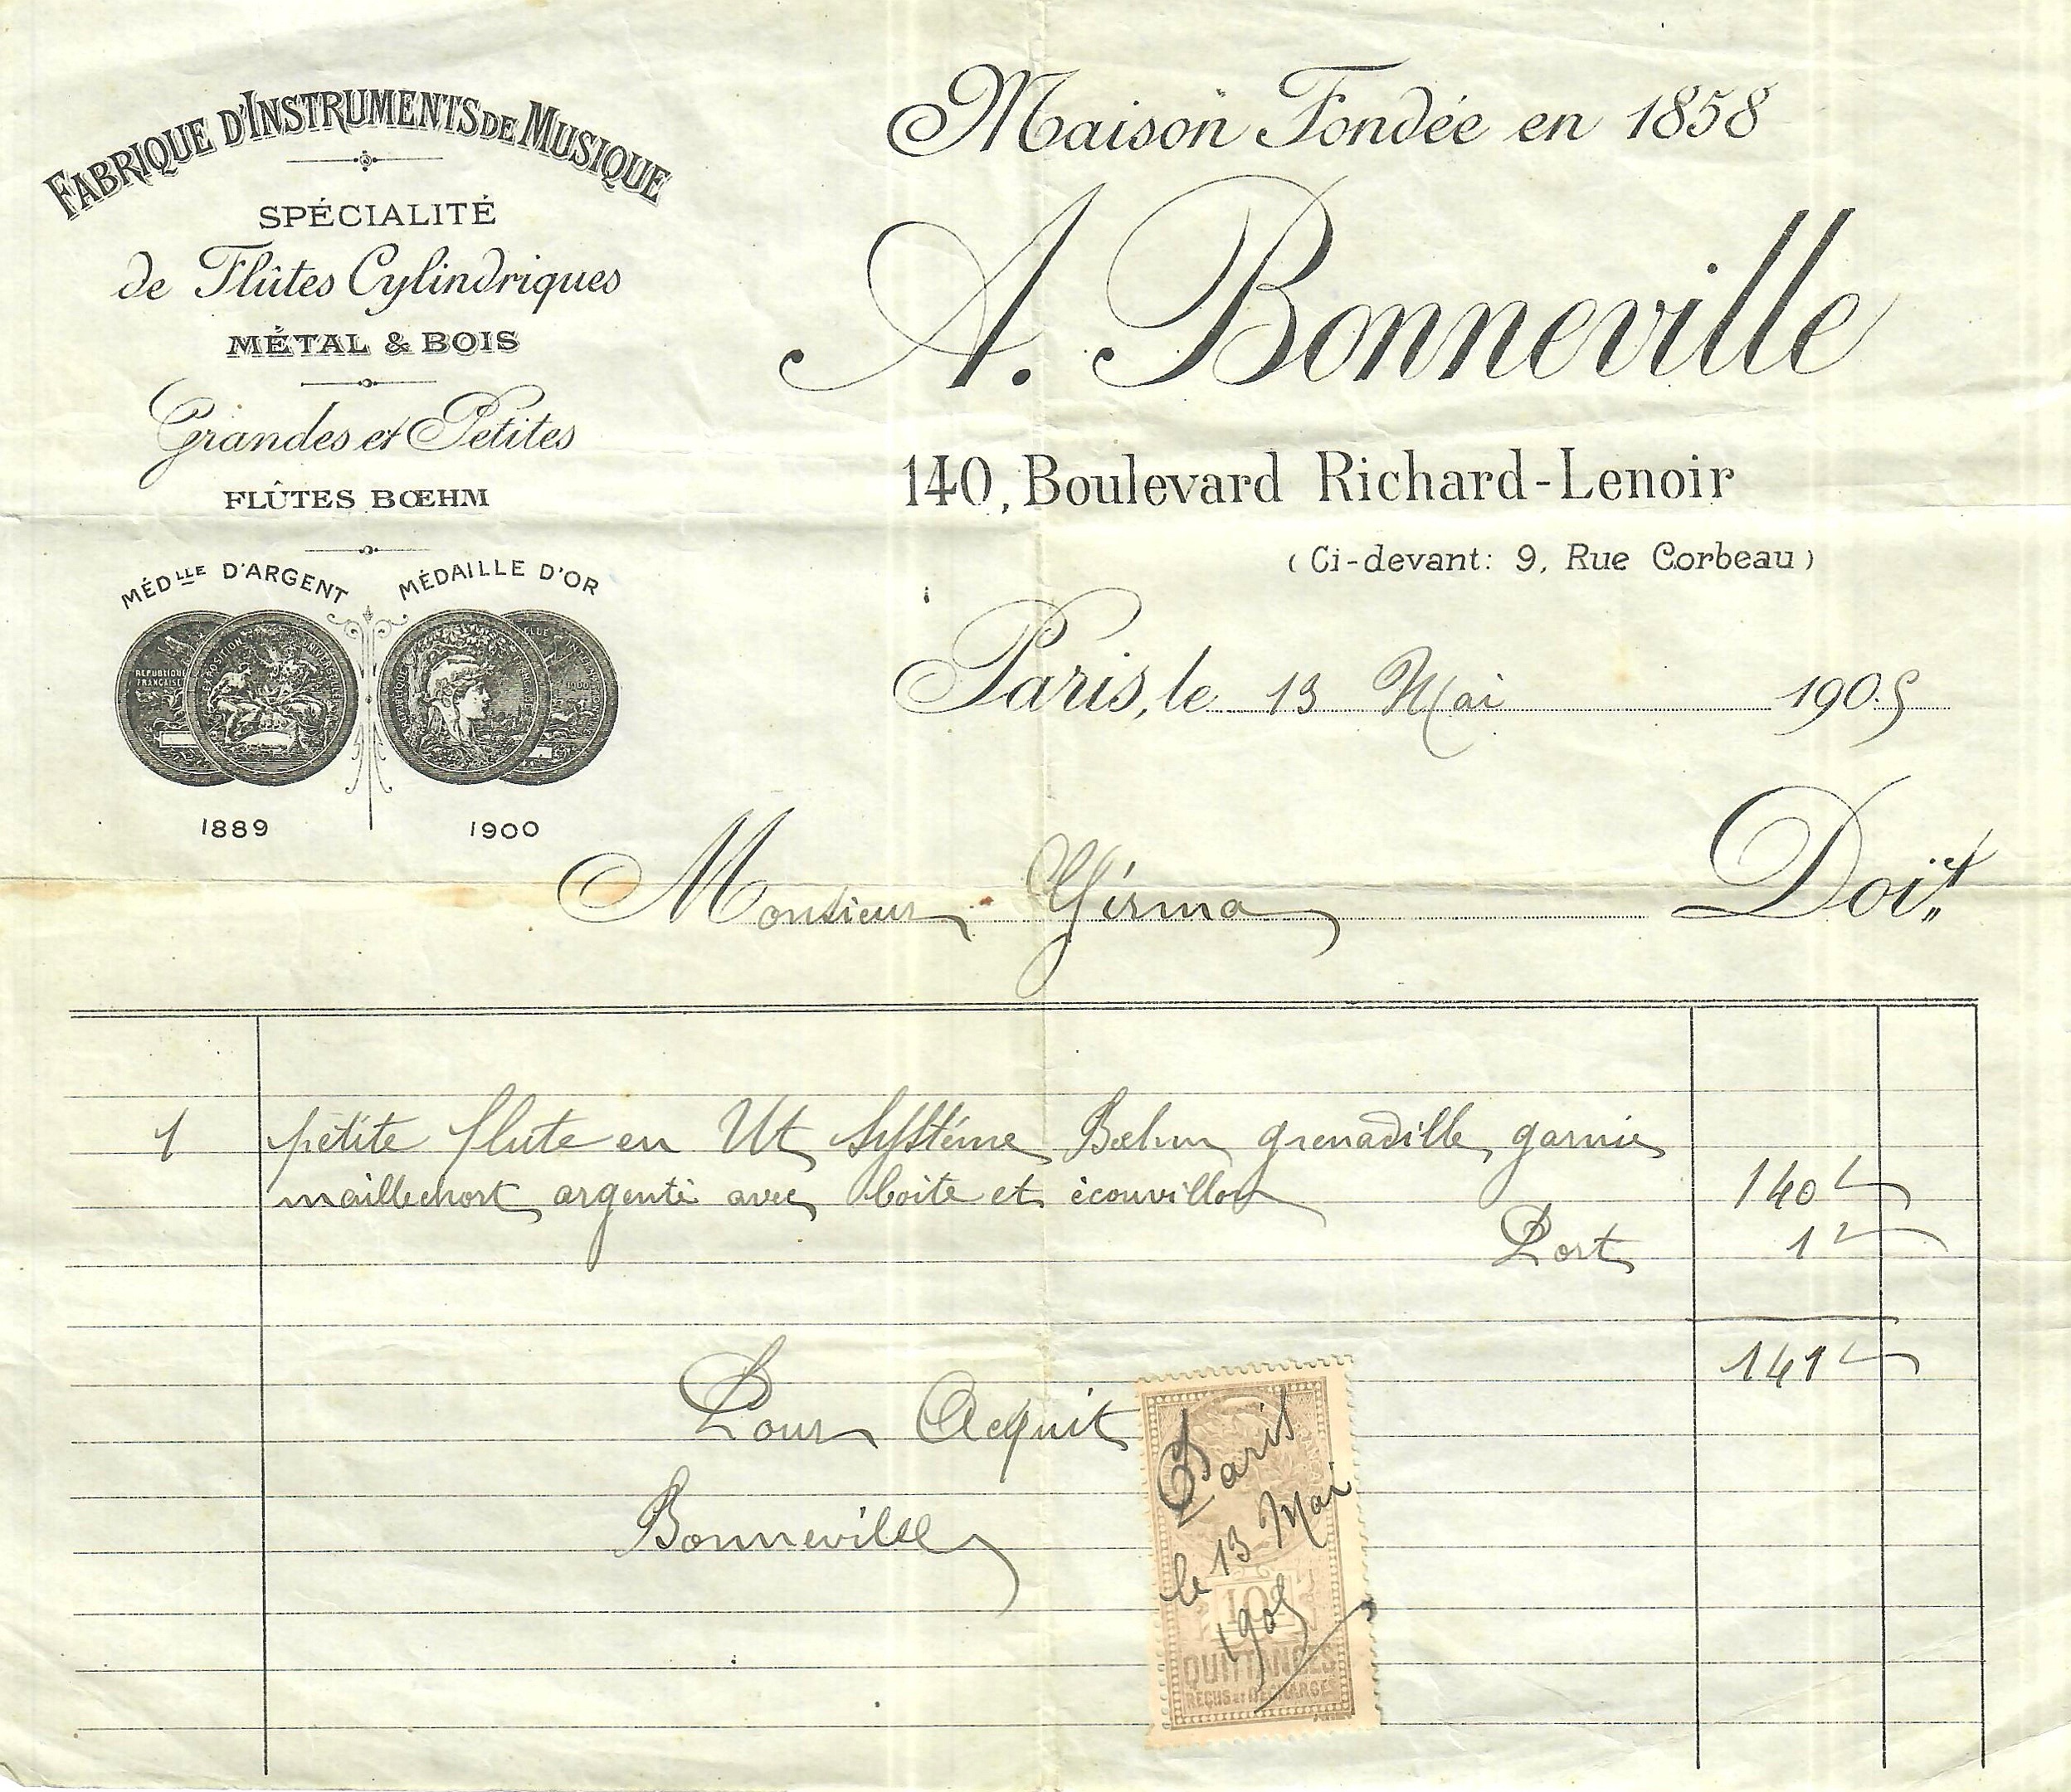 FABRIQUE D'INSTRUMENTS DE MUSIQUE
SPÉCIALITÉ
de Flûtes Cylindriques
MÉTAL & BOIS
Grandes et Petites
FLÛTES BŒHM
MÉDLLE D'ARGENT MÉDAILLE D'OR
REPUBLIQUE
FRANÇAISE
EXPOSITION UNIVERSELLE
1889 1900
Maison Fondée en 1858
A. Bonneville
140, Boulevard Richard-Lenoir
(Ci-devant: 9, Rue Corbeau)
Paris, le 13 Mai 1905
Monsieur Doit
1 petite flute en Ut Systéme Bœhm grenadille garnie
maillechort argenté avec boite et écouvillon 140
Port 1
141
Pour Acquit
Bonneville
Paris
le 13 Mai
1905
10
QUITTANCES
REÇUS ET DÉCHARGES